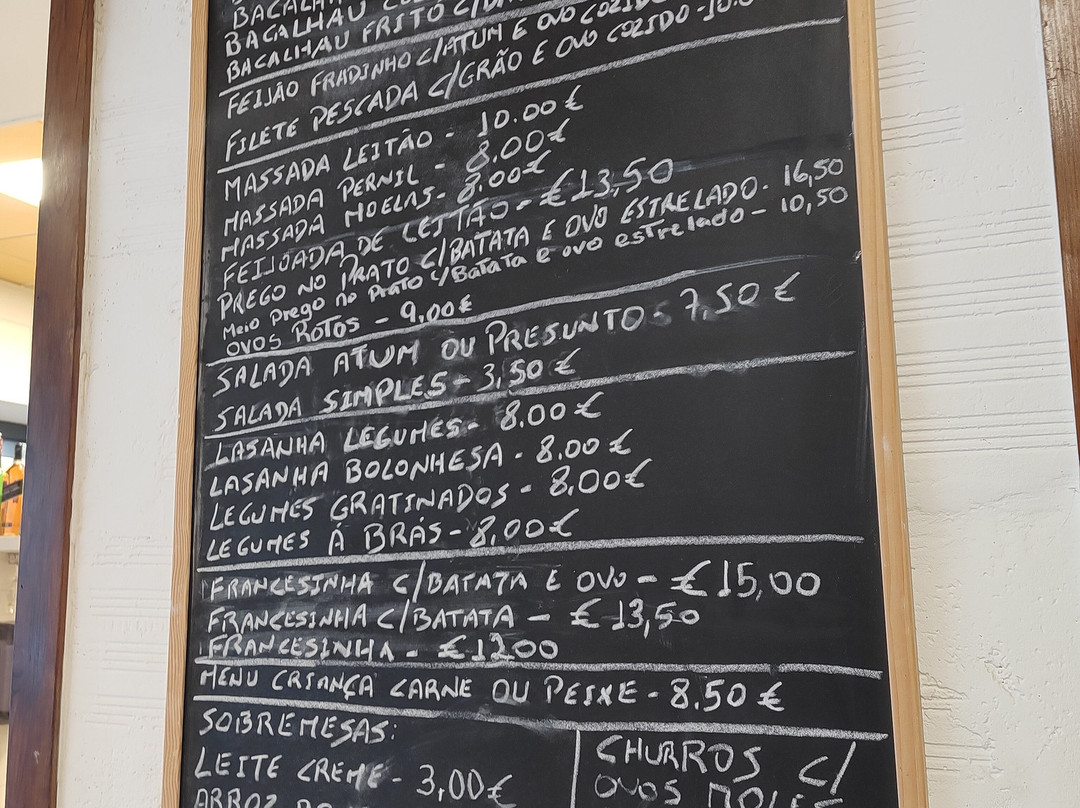 BACALHAU
BACALHAU FRITO C/
FEIJÃO FRADINHO C/ATUM E OVO COZIDO
FILETE PESCADA C/GRÃO E OVO COZIDO -10.0
MASSADA LEITÃO - 10.00 €
MASSADA PERNIL - 8.00€
MASSADA MOELAS - 8.00€
FEIJOADA DE LEITÃO - €13,50
PREGO NO PRATO C/BATATA E OVO ESTRELADO - 16,50
Meio Prego no Prato c/Batata e ovo estrelado - 10,50
OVOS ROTOS - 9,00€
SALADA ATUM OU PRESUNTO - 7,50 €
SALADA SIMPLES - 3,50 €
LASANHA LEGUMES - 8.00 €
LASANHA BOLONHESA - 8.00 €
LEGUMES GRATINADOS - 8,00€
LEGUMES Á BRÁS - 8,00€
FRANCESINHA C/BATATA E OVO - €15,00
FRANCESINHA C/BATATA - €13,50
FRANCESINHA - €12,00
MENU CRIANÇA CARNE OU PEIXE - 8.50 €
SOBREMESAS:
LEITE CREME - 3,00€
ARROZ
CHURROS C/
OVOS MOLES